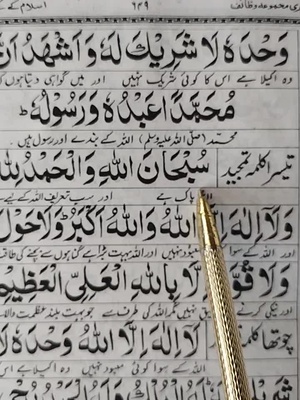 وَحْدَهٗ لَا شَرِيْكَ لَهٗ وَاَشْهَدُ اَنَّ
وہ اکیلا ہے اس کا کوئی شریک نہیں اور میں گواہی دیتا ہوں
مُحَمَّدًا عَبْدُهٗ وَرَسُوْلُهٗ ؕ
محمد (صلی اللہ علیہ وسلم) اللہ کے بندے اور رسول ہیں۔
تیسرا کلمہ تمجید سُبْحَانَ اللهِ وَالْحَمْدُ لِلّٰهِ
پاک ہے اور سب تعریف اللہ کے لیے
وَلَآ اِلٰهَ اِلَّا اللهُ وَاللهُ اَكْبَرُ وَلَا حَوْلَ
اور اللہ کے سوا کوئی معبود نہیں اور اللہ بہت بڑا ہے گناہوں سے بچنے کی طاقت
وَلَا قُوَّةَ اِلَّا بِاللهِ الْعَلِيِّ الْعَظِيْمِ
اور نیکی کرنے کی نہیں مگر اللہ کی طرف سے جو بہت بلند عظمت والا
چوتھا کلمہ لَآ اِلٰهَ اِلَّا اللهُ وَحْدَهٗ لَا
اللہ کے سوا کوئی معبود نہیں وہ اکیلا ہے اس